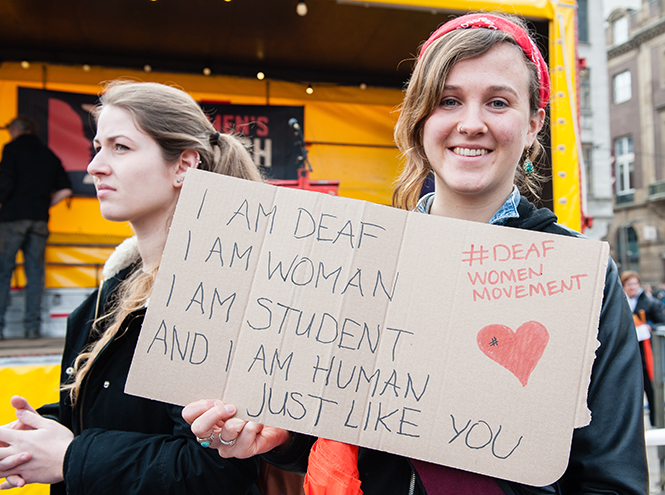 WOMEN'S
I AM DEAF
I AM WOMAN
I AM STUDENT
AND I AM HUMAN
JUST LIKE YOU
#DEAF
WOMEN
MOVEMENT
#